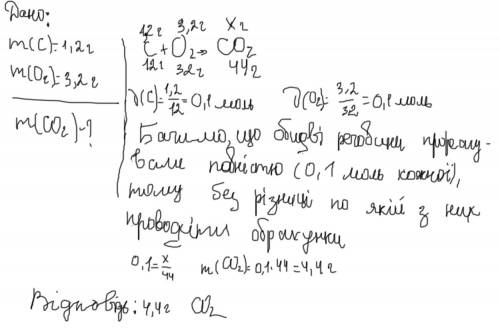 Дано:
m(C)=1,2г
m(O₂)=3,2г
m(CO₂)-?
12г 3,2г xг
C+O₂→CO₂
12г 32г 44г
ν(C)=1,2/12=0,1 моль ν(O₂)=3,2/32=0,1 моль
Бачимо, що обидві речовини прореагу-
вали повністю (0,1 моль кожної),
тому без різниці по якій з них
проводити обрахунки
0,1=x/44 m(CO₂)=0,1·44=4,4г
Відповідь: 4,4г CO₂